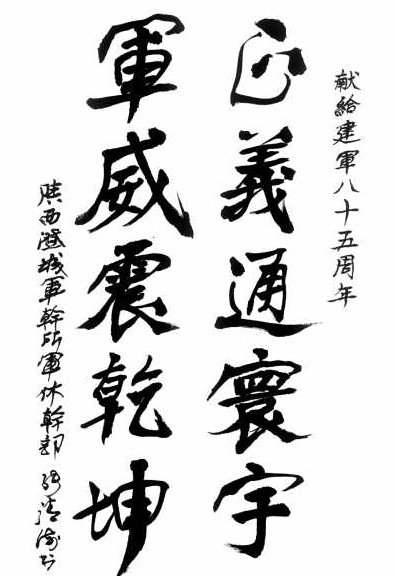 献給建軍八十五周年
正義通寰宇
軍威震乾坤
陕西澄城軍幹所軍休幹部